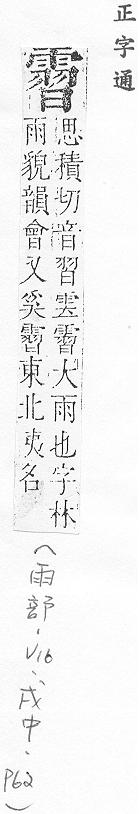 正字通
霫
思積切音習霫大雨也字林
雨貌韻會又奚霫東北夷名
(雨部、V16、戌中、P62)